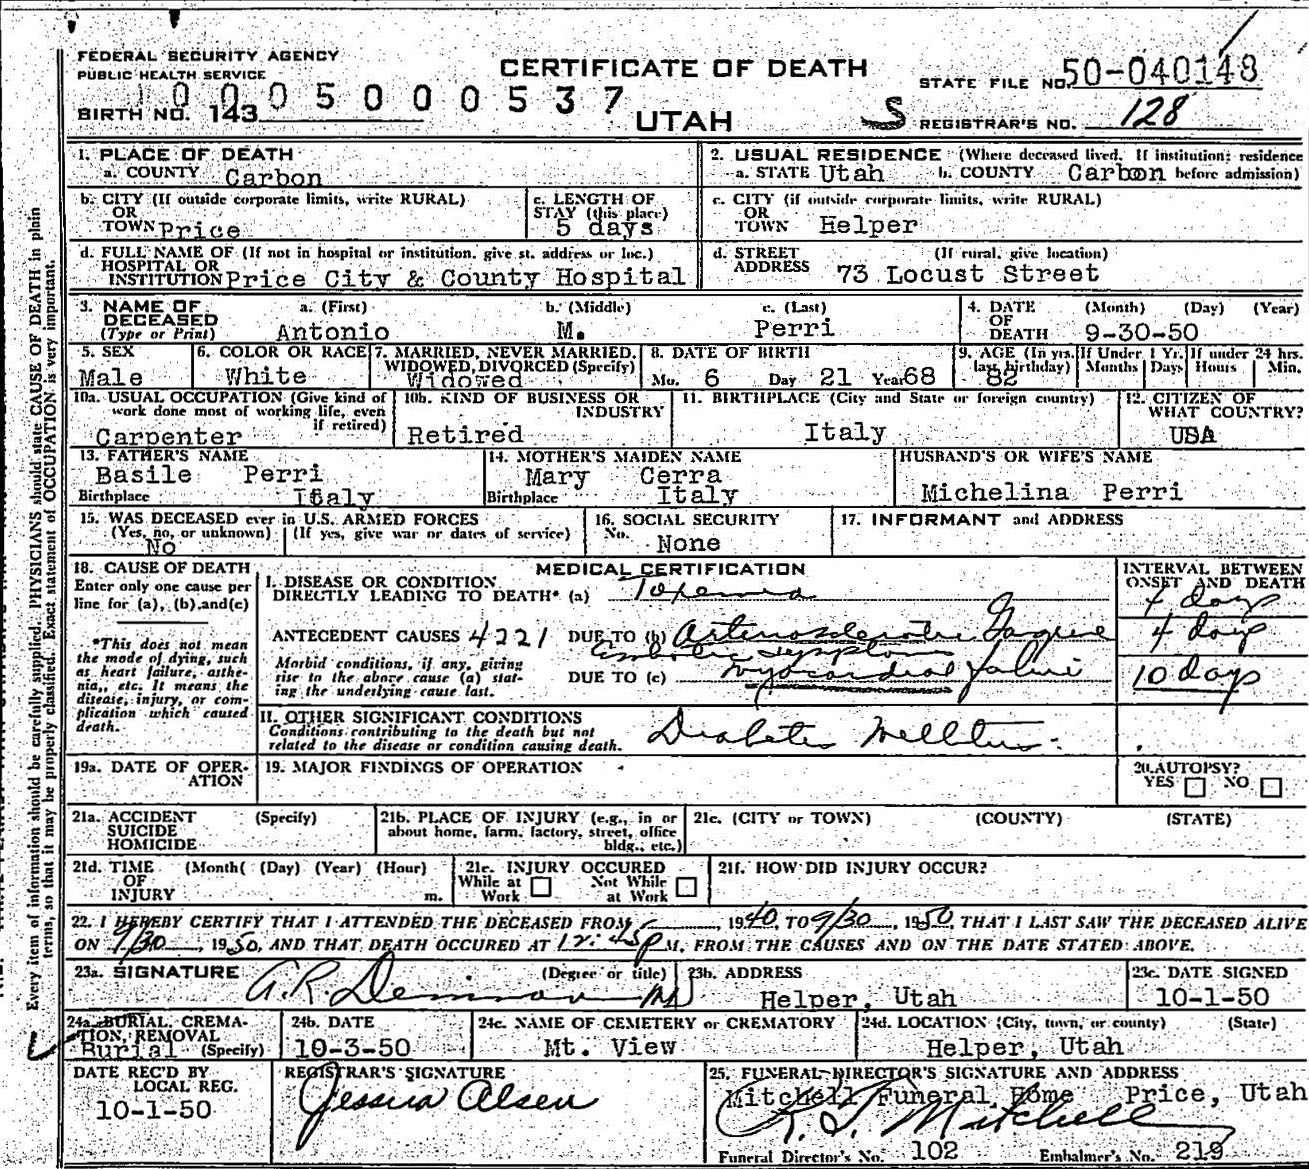 FEDERAL SECURITY AGENCY
PUBLIC HEALTH SERVICE
CERTIFICATE OF DEATH
STATE FILE NO. 50-040148
1 0 0 0 5 0 0 0 5 3 7
BIRTH NO. 143
UTAH
S REGISTRAR'S NO. 128
1. PLACE OF DEATH
a. COUNTY Carbon
2. USUAL RESIDENCE (Where deceased lived. If institution: residence
a. STATE Utah b. COUNTY Carbon before admission)
b. CITY (If outside corporate limits, write RURAL)
OR
TOWN Price
c. LENGTH OF
STAY (this place)
5 days
c. CITY (if outside corporate limits, write RURAL)
OR
TOWN Helper
d. FULL NAME OF (If not in hospital or institution, give st. address or loc.)
HOSPITAL OR
INSTITUTION Price City & County Hospital
d. STREET (If rural, give location)
ADDRESS 73 Locust Street
3. NAME OF a. (First) b. (Middle) c. (Last)
DECEASED
(Type or Print) Antonio M. Perri
4. DATE (Month) (Day) (Year)
OF
DEATH 9-30-50
5. SEX
Male
6. COLOR OR RACE
White
7. MARRIED, NEVER MARRIED,
WIDOWED, DIVORCED (Specify)
Widowed
8. DATE OF BIRTH
Mo. 6 Day 21 Year 68
9. AGE (In yrs.
last birthday)
82
If Under 1 Yr.
Months Days
If under 24 hrs.
Hours Min.
10a. USUAL OCCUPATION (Give kind of
work done most of working life, even
if retired)
Carpenter
10b. KIND OF BUSINESS OR
INDUSTRY
Retired
11. BIRTHPLACE (City and State or foreign country)
Italy
12. CITIZEN OF
WHAT COUNTRY?
USA
13. FATHER'S NAME
Basile Perri
Birthplace Italy
14. MOTHER'S MAIDEN NAME
Mary Cerra
Birthplace Italy
HUSBAND'S OR WIFE'S NAME
Michelina Perri
15. WAS DECEASED ever in U.S. ARMED FORCES
(Yes, no, or unknown) (If yes, give war or dates of service)
No
16. SOCIAL SECURITY
No.
None
17. INFORMANT and ADDRESS
18. CAUSE OF DEATH
Enter only one cause per
line for (a), (b), and (c)
*This does not mean
the mode of dying, such
as heart failure, asthe-
nia, etc. It means the
disease, injury, or com-
plication which caused
death.
MEDICAL CERTIFICATION
I. DISEASE OR CONDITION
DIRECTLY LEADING TO DEATH* (a) Toxemia
ANTECEDENT CAUSES 4221 DUE TO (b) Arteriosclerotic
Embolic Symptoms
Morbid conditions, if any, giving
rise to the above cause (a) stat-
ing the underlying cause last.
DUE TO (c) Myocardial failure
II. OTHER SIGNIFICANT CONDITIONS
Conditions contributing to the death but not
related to the disease or condition causing death.
Diabetes Mellitus
INTERVAL BETWEEN
ONSET AND DEATH
4 days
4 days
10 days
19a. DATE OF OPER-
ATION
19. MAJOR FINDINGS OF OPERATION
20. AUTOPSY?
YES NO
21a. ACCIDENT (Specify)
SUICIDE
HOMICIDE
21b. PLACE OF INJURY (e.g., in or
about home, farm, factory, street, office
bldg., etc.)
21c. (CITY or TOWN) (COUNTY) (STATE)
21d. TIME (Month( (Day) (Year) (Hour)
OF
INJURY m.
21e. INJURY OCCURED
While at Work Not While at Work
21f. HOW DID INJURY OCCUR?
22. I HEREBY CERTIFY THAT I ATTENDED THE DECEASED FROM 1940, TO 9/30, 1950, THAT I LAST SAW THE DECEASED ALIVE
ON 9/30, 1950, AND THAT DEATH OCCURED AT 12:45 P M. FROM THE CAUSES AND ON THE DATE STATED ABOVE.
23a. SIGNATURE (Degree or title)
A.R. Demman MD
23b. ADDRESS
Helper, Utah
23c. DATE SIGNED
10-1-50
24a. BURIAL, CREMA-
TION, REMOVAL
Burial (Specify)
24b. DATE
10-3-50
24c. NAME OF CEMETERY or CREMATORY
Mt. View
24d. LOCATION (City, town, or county) (State)
Helper, Utah
DATE REC'D BY
LOCAL REG.
10-1-50
REGISTRAR'S SIGNATURE
Jessica Olsen
25. FUNERAL DIRECTOR'S SIGNATURE AND ADDRESS
Mitchell Funeral Home Price, Utah
Mitchell
Funeral Director's No. 102 Embalmer's No. 219
Every item of information should be carefully supplied. PHYSICIANS should state CAUSE OF DEATH in plain
terms, so that it may be properly classified. Exact statement of OCCUPATION is very important.